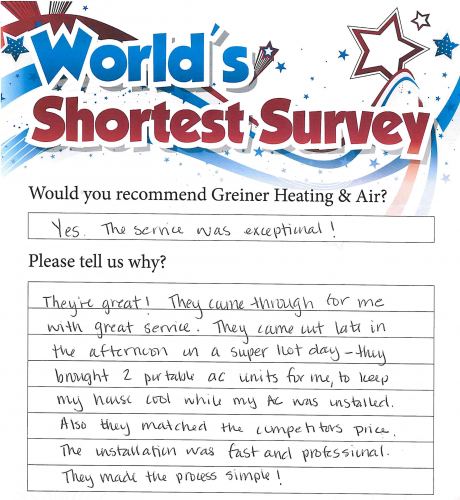 World's
Shortest Survey
Would you recommend Greiner Heating & Air?
Yes. The service was exceptional!
Please tell us why?
They're great! They came through for me
with great service. They came out late in
the afternoon on a super hot day - they
brought 2 portable ac units for me, to keep
my house cool while my AC was installed.
Also they matched the competitors price.
The installation was fast and professional.
They made the process simple!